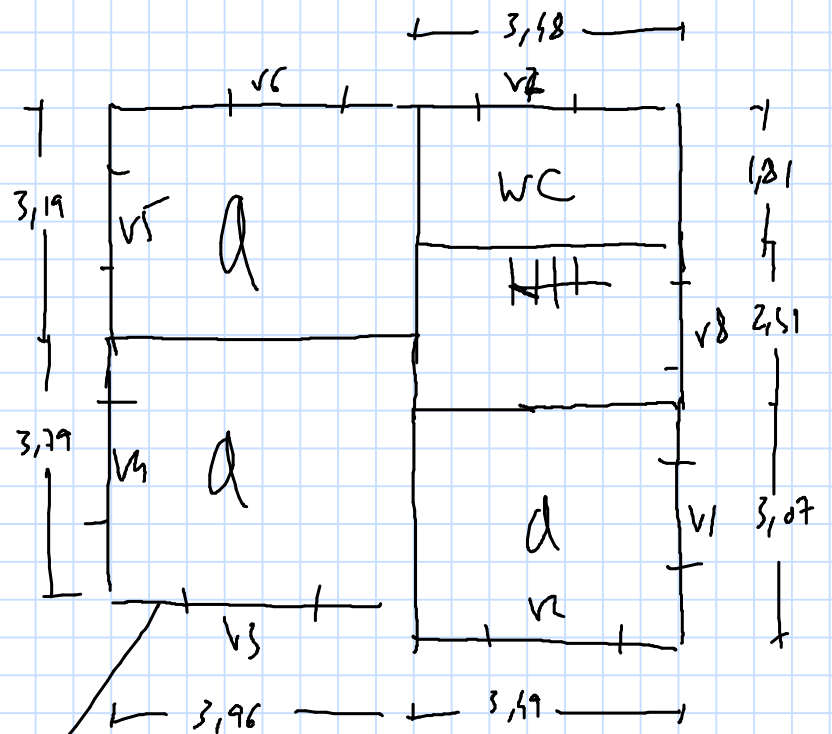 3,48
v6 v7
3,19 v5 d WC 1,81
v8 2,51
3,79 v4 d d v1 3,07
v2
v3
3,96 3,49